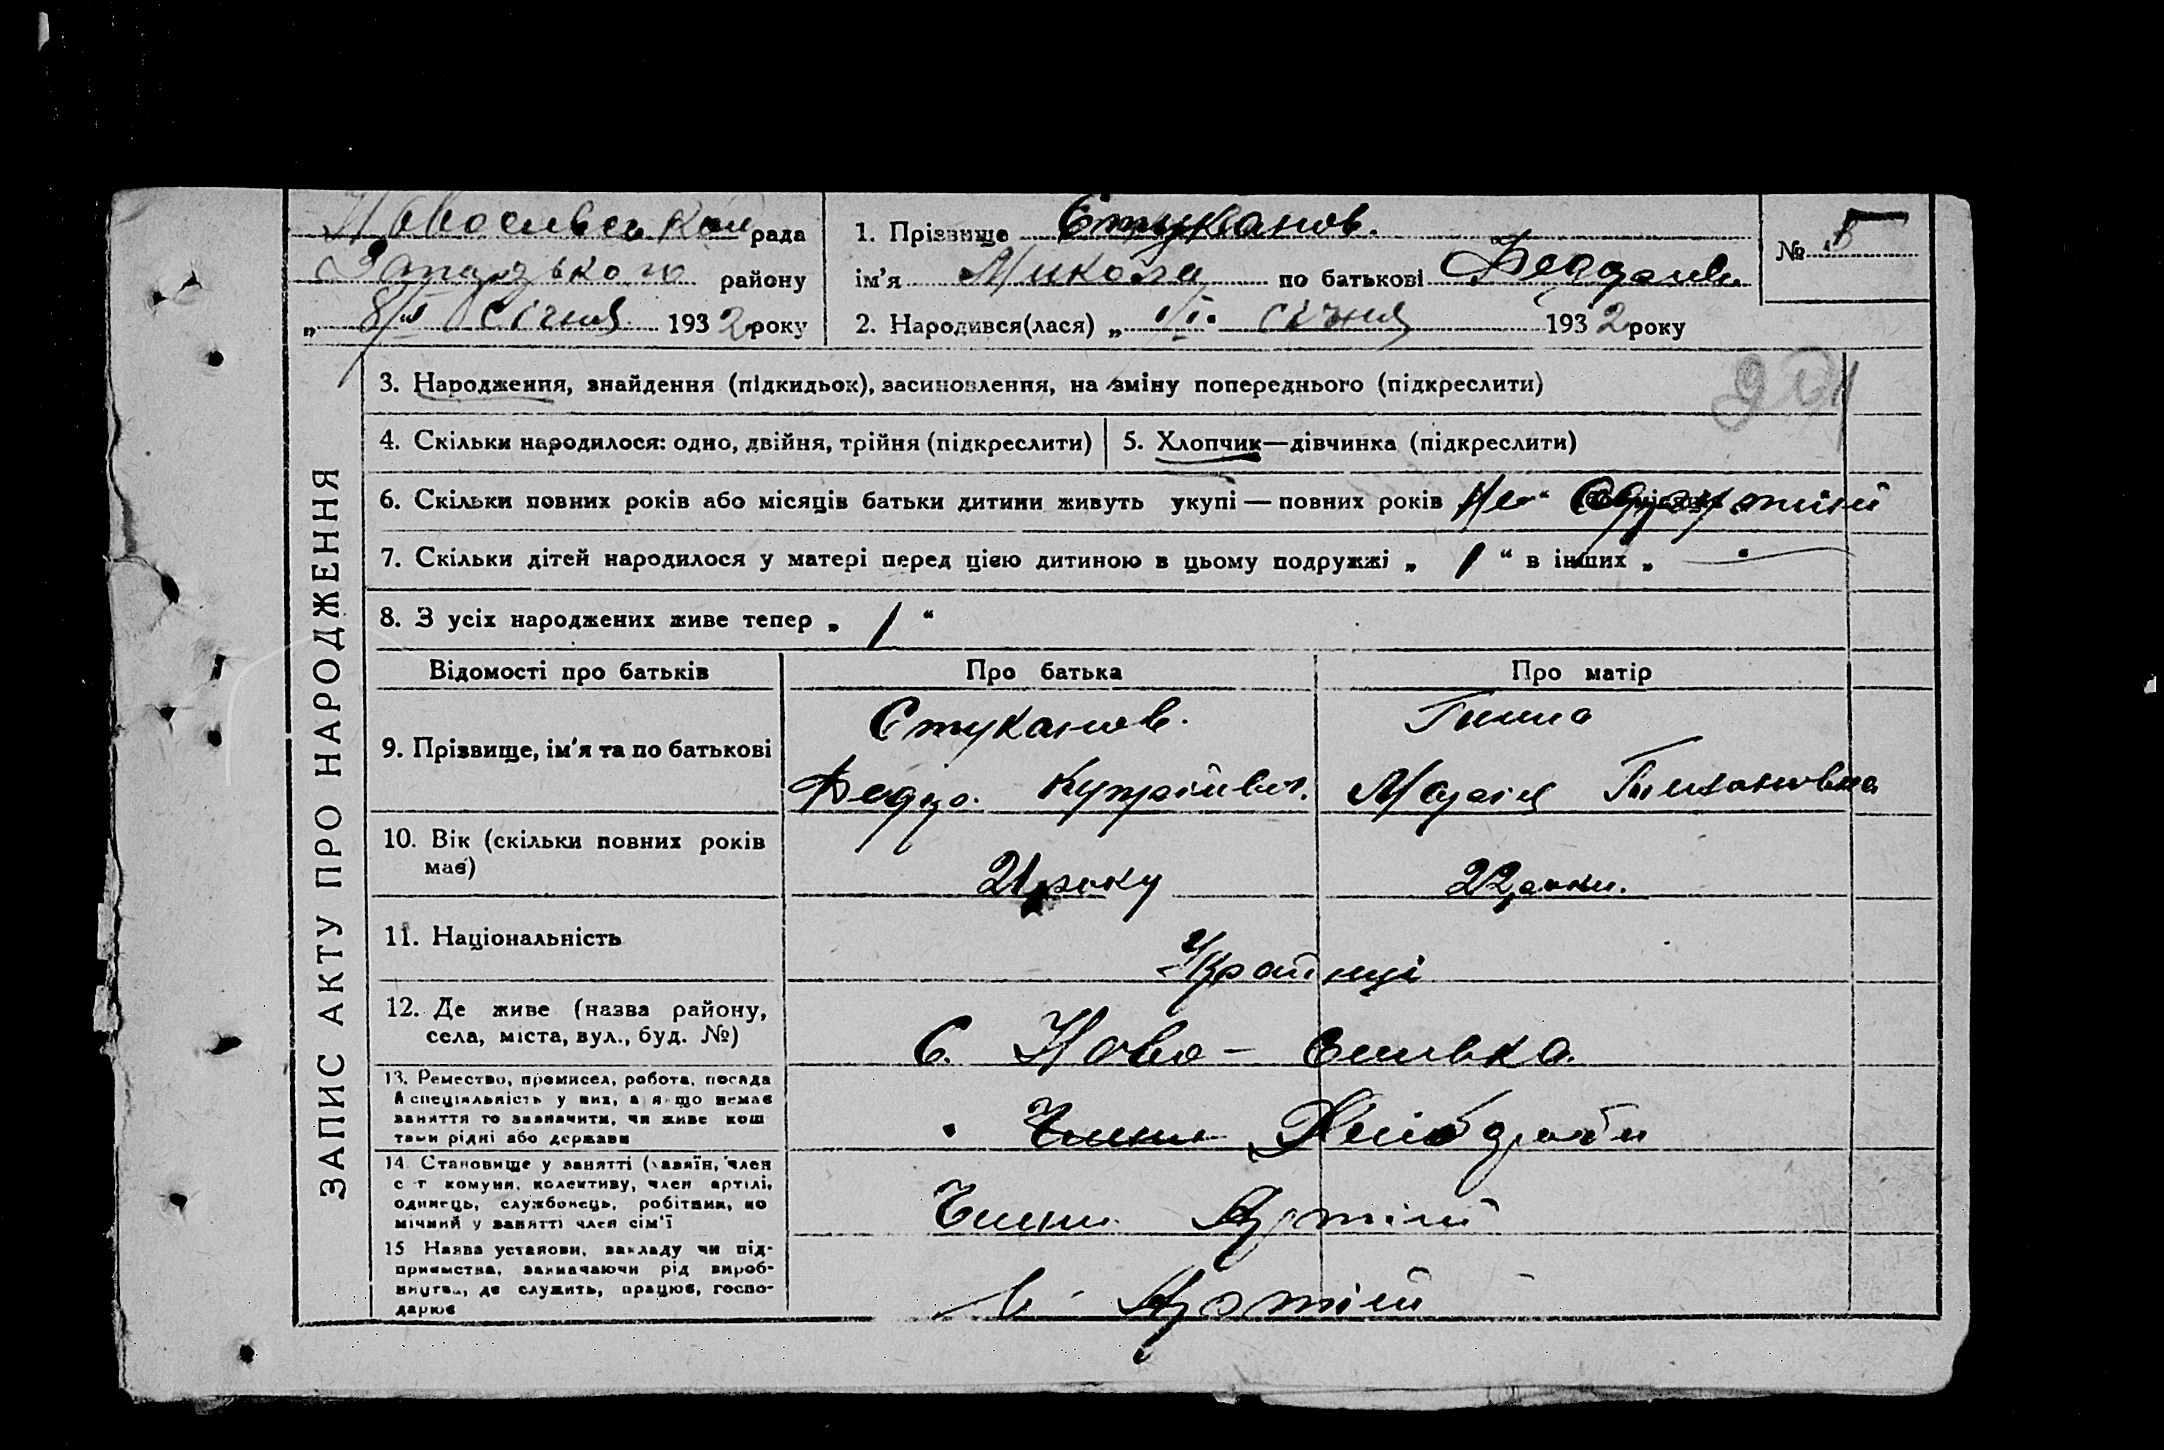 рада
району
„ 8/I Січня 1932 року
1. Прізвище Стуканов.
ім'я Микола по батькові
2. Народився(лася) „ січня 1932 року
№ 5
3. Народження, знайдення (підкидьок), засиновлення, на зміну попереднього (підкреслити)
4. Скільки народилося: одно, двійня, трійня (підкреслити)
5. Хлопчик—дівчинка (підкреслити)
6. Скільки повних років або місяців батьки дитини живуть укупі — повних років
7. Скільки дітей народилося у матері перед цією дитиною в цьому подружжі „ 1 “ в інших „ -
8. З усіх народжених живе тепер „ 1 “
ЗАПИС АКТУ ПРО НАРОДЖЕННЯ
Відомості про батьків
Про батька
Про матір
9. Прізвище, ім'я та по батькові
Стуканов.
Марія
10. Вік (скільки повних років
має)
21 року
22 роки.
11. Національність
Українці
12. Де живе (назва району,
села, міста, вул., буд. №)
С. Ново-
13. Ремество, промисел, робота, посада
й спеціяльність у них, а якщо немає
заняття то зазначити, чи живе кош
тами рідні або держави
Хлібороби
14. Становище у занятті (хазяїн, член
с-г комуни, колективу, член артілі,
одинець, службовець, робітник, по
мічний у занятті член сім'ї
Члени Артілі
15 Назва установи, закладу чи під-
приємства, зазначаючи рід вироб-
ництва, де служить, працює, госпо-
дарює
Артілі